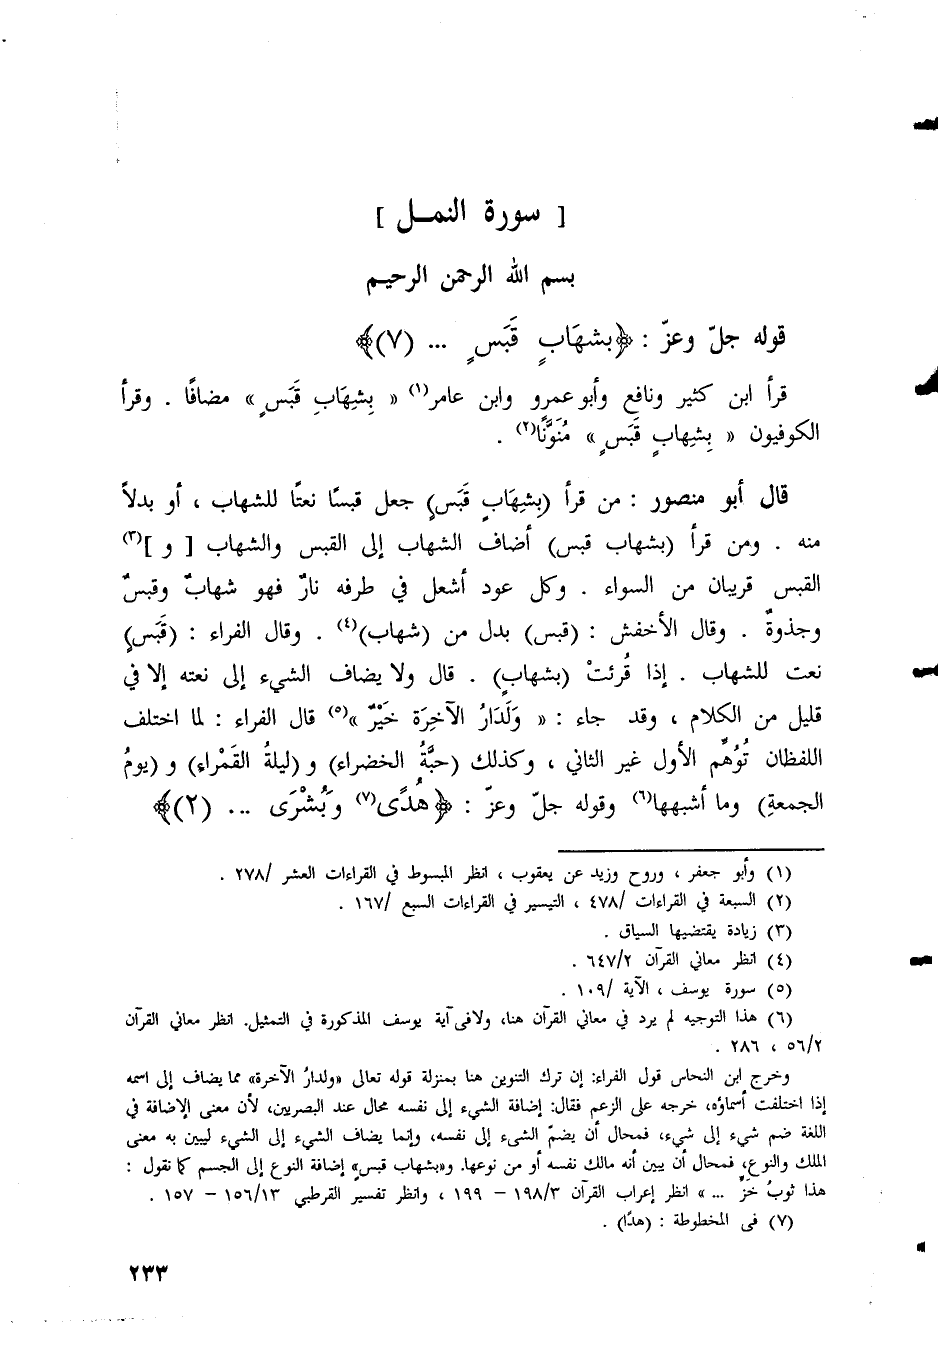 [ سورة النمـل ]
بسم الله الرحمن الرحيم
قوله جلّ وعزّ : ﴿بشهَابٍ قَبَسٍ ... (٧)﴾
قرأ ابن كثير ونافع وأبو عمرو وابن عامر(١) « بِشِهَابِ قَبَسٍ » مضافًا . وقرأ
الكوفيون « بِشِهابٍ قَبَسٍ » مُنَوَّنًا(٢) .
قال أبو منصور : من قرأ (بشِهَابٍ قَبَسٍ) جعل قبسًا نعتًا للشهاب ، أو بدلاً
منه . ومن قرأ (بشهاب قبس) أضاف الشهاب إلى القبس والشهاب [ و ](٣)
القبس قريبان من السواء . وكل عود أشعل في طرفه نارٌ فهو شهابٌ وقبسٌ
وجذوةٌ . وقال الأخفش : (قبس) بدل من (شهاب)(٤) . وقال الفراء : (قَبَسٍ)
نعت للشهاب . إذا قُرئتْ (بشهابٍ) . قال ولا يضاف الشيء إلى نعته إلا في
قليل من الكلام ، وقد جاء : « وَلَدَارُ الآخِرَة خَيْرٌ »(٥) قال الفراء : لما اختلف
اللفظان تُوُهِّم الأول غير الثاني ، وكذلك (حبَّةُ الخضراء) و (ليلةُ القَمْراء) و (يومُ
الجمعةِ) وما أشبهها(٦) وقوله جلّ وعزّ : ﴿هُدًى(٧) وَبُشْرَى ... (٢)﴾
(١) وأبو جعفر ، وروح وزيد عن يعقوب ، انظر المبسوط في القراءات العشر /٢٧٨ .
(٢) السبعة في القراءات /٤٧٨ ، التيسير في القراءات السبع /١٦٧ .
(٣) زيادة يقتضيها السياق .
(٤) انظر معاني القرآن ٦٤٧/٢ .
(٥) سورة يوسف ، الآية /١٠٩ .
(٦) هذا التوجيه لم يرد في معاني القرآن هنا، ولافى آية يوسف المذكورة في التمثيل. انظر معاني القرآن
٥٦/٢ ، ٢٨٦ .
وخرج ابن النحاس قول الفراء: إن ترك التنوين هنا بمنزلة قوله تعالى «ولدارُ الآخرة» مما يضاف إلى اسمه
إذا اختلفت أسماؤه، خرجه على الزعم فقال: إضافة الشيء إلى نفسه محال عند البصريين، لأن معنى الإضافة في
اللغة ضم شيء إلى شيء، فمحال أن يضمّ الشىء إلى نفسه، وإنما يضاف الشيء إلى الشيء ليبين به معنى
الملك والنوع، فمحال أن يبين أنه مالك نفسه أو من نوعها. و«بشهاب قبس» إضافة النوع إلى الجسم كما نقول :
هذا ثوبُ خَزٍّ ... » انظر إعراب القرآن ١٩٨/٣ – ١٩٩ ، وانظر تفسير القرطبي ١٥٦/١٣ – ١٥٧ .
(٧) فى المخطوطة : (هدًا) .
٢٣٣